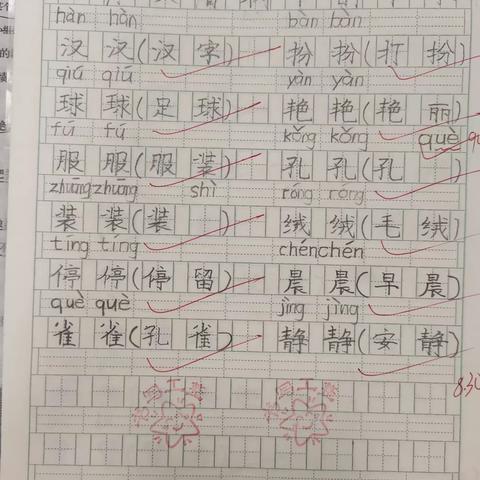 hàn hàn bàn bàn
汉 汉(汉 字) 扮 扮(打 扮)
qiú qiú yàn yàn
球 球(足 球) 艳 艳(艳 丽)
fú fú kǒng kǒng què
服 服(服 装) 孔 孔(孔 )
zhuāng zhuāng shì róng róng
装 装(装 ) 绒 绒(毛 绒)
tíng tíng chén chén
停 停(停 留) 晨 晨(早 晨)
què què jìng jìng
雀 雀(孔 雀) 静 静(安 静)